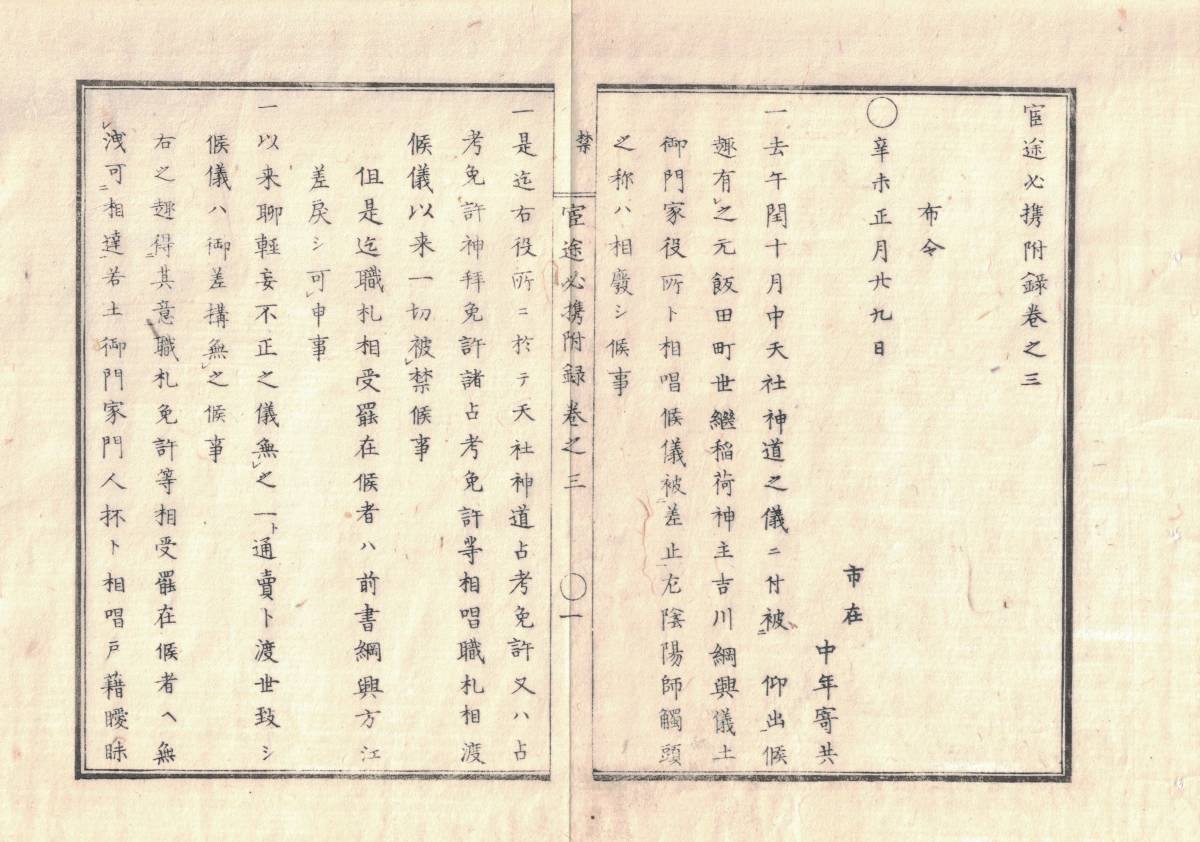 宦途必携附録巻之三
布令
◯辛未正月廿九日
市在
中年寄共
一去午閏十月中天社神道之儀ニ付被ニ仰出候
趣有レ之元飯田町世継稲荷神主吉川綱興儀土
御門家役所ト相唱候儀被ニ差止尤陰陽師觸頭
之称ハ相廢シ候事
禁
宦途必携附録巻之三
◯一
一是迄右役所ニ於テ天社神道占考免許又ハ占
考免許神拜免許諸占考免許等相唱職札相渡
候儀以来一切被レ禁候事
但是迄職札相受罷在候者ハ前書綱興方江
差戻シ可レ申事
一以来聊輕妄不正之儀無レ之一ト通賣ト渡世致シ
候儀ハ御差搆無レ之候事
右之趣得ニ其意職札免許等相受罷在候者ヘ無
レ洩可ニ相達若土御門家門人抔ト相唱戸籍曖昧